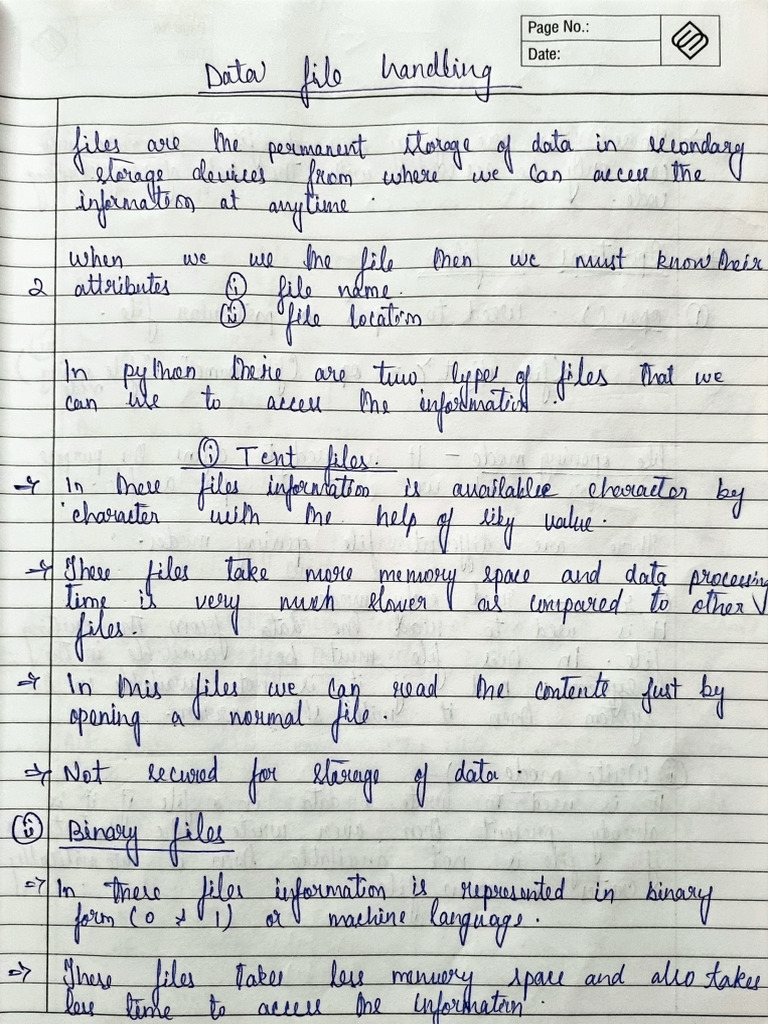 Page No.:
Date:
Data file handling
files are the permanent storage of data in secondary
storage devices from where we can access the
information at anytime.
When we use the file then we must know their
2 attributes (i) file name.
(ii) file location
In python there are two types of files that we
can use to access the information.
(i) Text files.
→ In these files information is available character by
character with the help of value.
→ These files take more memory space and data processing
time is very much slower as compared to other
files.
→ In this files we can read the contents just by
opening a normal file.
⇒ Not secured for storage of data
(ii) Binary files
⇒ In these files information is represented in binary
form (0 & 1) or machine language.
⇒ These files takes less memory space and also takes
less time to access the information.